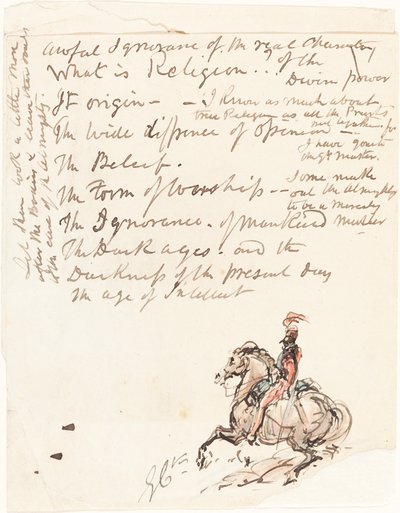 awful Ignorance of the real Character
of the
Divine power
What is Religion...?
It origin —
The wide difference of Opinion —
The Belief.
The Form of Worship —
The Ignorance of Mankind
The Dark ages and the
Darkness of the present Day
The age of Intellect
— I Know as much about
true Religion as all the Priests
put together
I have
Some make
out the Almighty
to be a merciful
Let them look a little more
after the Brains &
the care of the Almighty